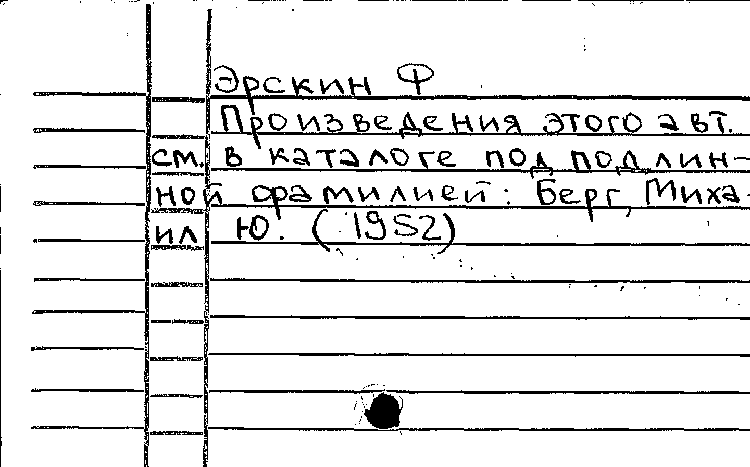 Эрскин Ф
Произведения этого авт.
см. в каталоге под подлин-
ной фамилией: Берг, Миха-
ил Ю. (1952)